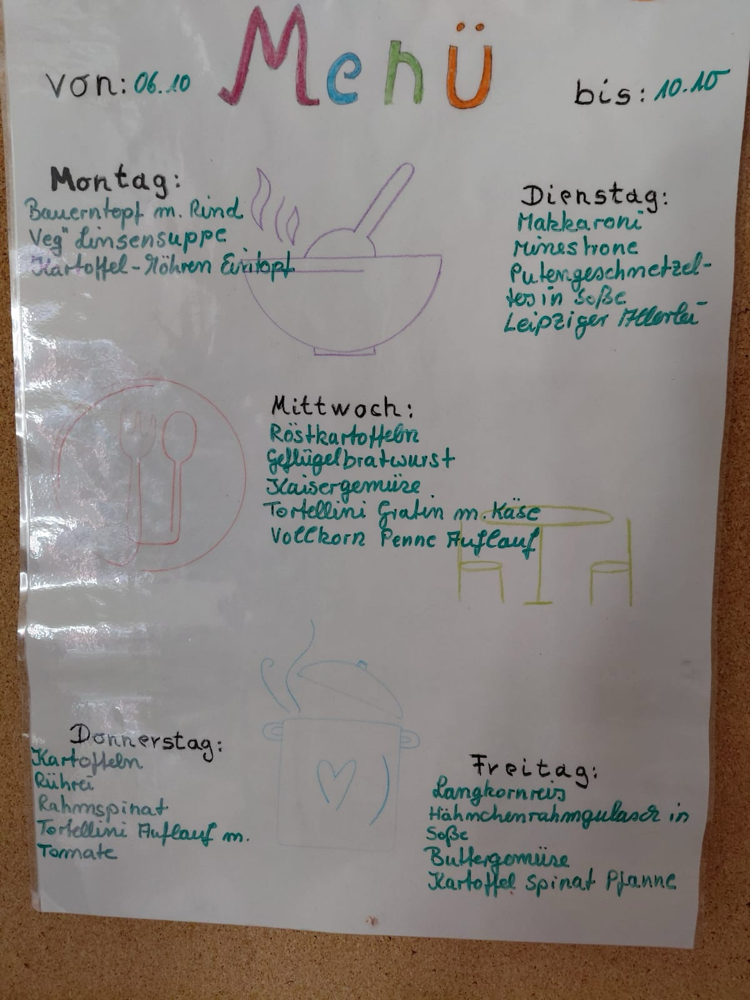 Menü
von: 06.10
bis: 10.10
Montag:
Bauerntopf m. Rind
Veg" Linsensuppe
Kartoffel-Möhren Eintopf
Dienstag:
Makkaroni
Minestrone
Putengeschnetzel-
tes in Soße
Leipziger Allerlei
Mittwoch:
Röstkartoffeln
Geflügelbratwurst
Kaisergemüse
Tortellini Gratin m. Käse
Vollkorn Penne Auflauf
Donnerstag:
Kartoffeln
Rührei
Rahmspinat
Tortellini Auflauf m.
Tomate
Freitag:
Langkornreis
Hähnchenrahmgulasch in
Soße
Buttergemüse
Kartoffel Spinat Pfanne